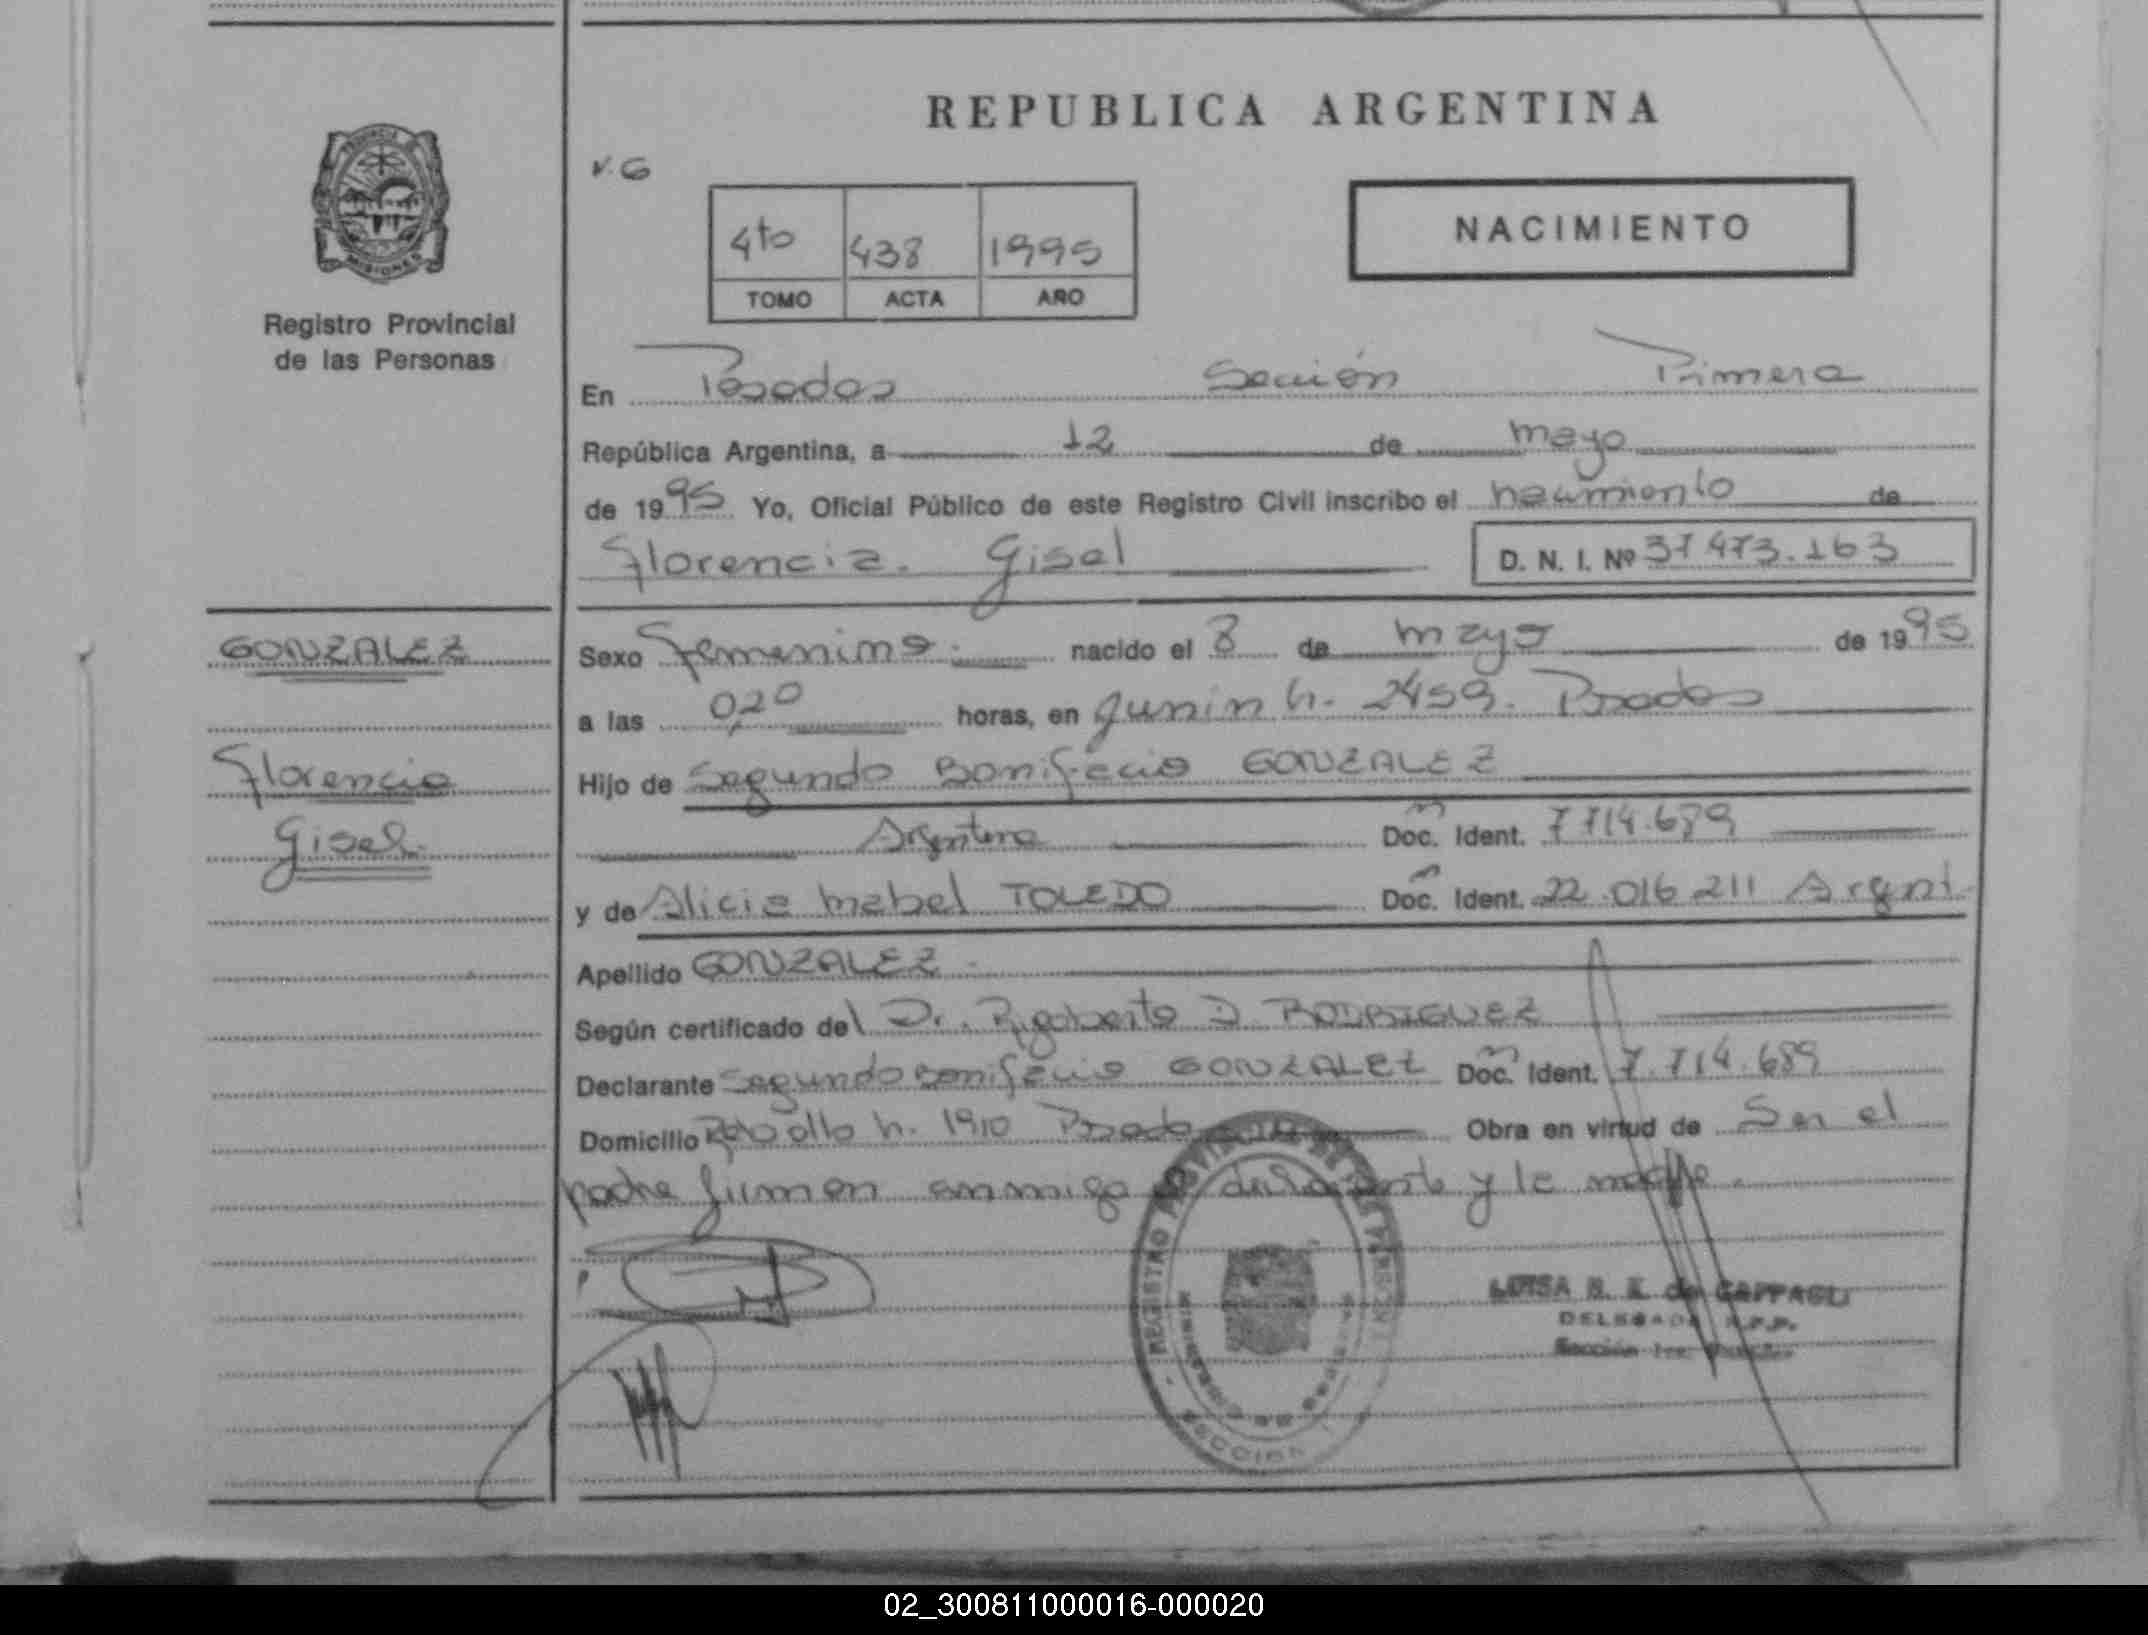 REPUBLICA ARGENTINA
PROVINCIA DE
MISIONES
Registro Provincial
de las Personas
V.G
4to 438 1995
TOMO ACTA AÑO
NACIMIENTO
En Posadas Sección Primera
República Argentina, a 12 de mayo
de 1995 Yo, Oficial Público de este Registro Civil inscribo el nacimiento de
Florencia Gisel D. N. I. Nº 37 473.163
GONZALEZ
Florencia
Gisel
Sexo Femenino nacido el 8 de mayo de 1995
a las 0,20 horas, en Junin n. 2459. Posadas
Hijo de Segundo Bonifacio GONZALEZ
Argentino Doc. Ident. 7 714.689
y de Alicia Mabel TOLEDO Doc. Ident. 22.016 211 Argent.
Apellido GONZALEZ
Según certificado del Dr. Rigoberto D. RODRIGUEZ
Declarante Segundo Bonifacio GONZALEZ Doc. Ident. 7.714.689
Domicilio n. 1910 Posadas Obra en virtud de Ser el
padre firman conmigo declarante y la madre.
REGISTRO PROVINCIAL DE LAS PERSONAS
MISIONES
SECCION
LUISA de CAPPAGLI
DELEGADA R.P.P.
Sección 1ra.
02_300811000016-000020